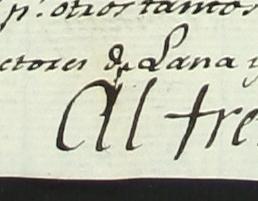 p.r otros tantos
ctores de Lana y
Al tre